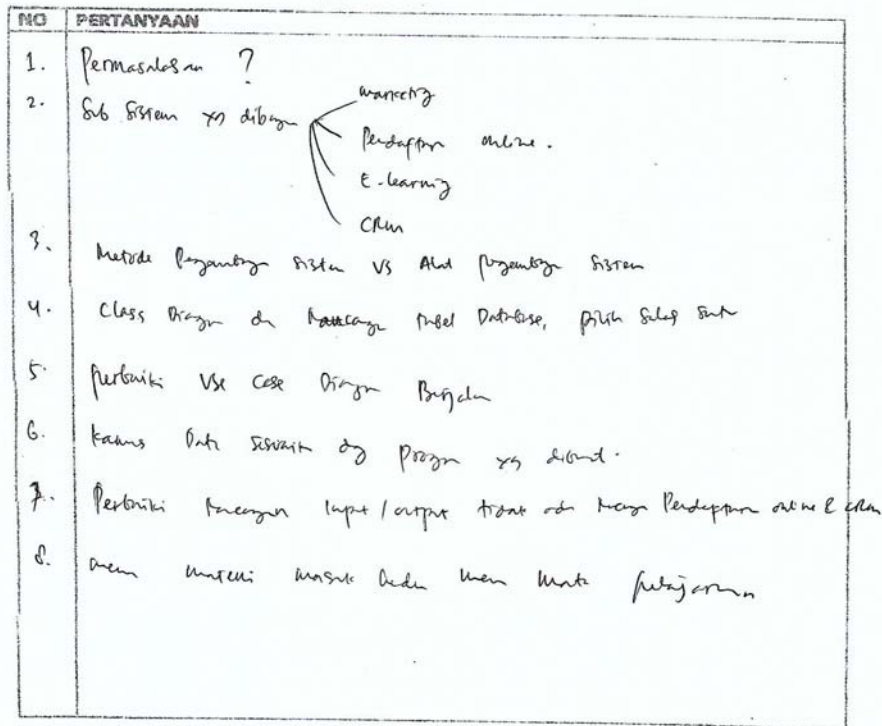 NO PERTANYAAN
1. Permasalahan ?
2. Sub Sistem yg dibangun
marketing
Pendaftaran online.
E-learning
CRM
3. Metode Pengembangan sistem VS Alat pengembangan Sistem
4. Class Diagram dan Rancangan tabel Database, pilih Salah Satu
5. perbaiki Use Case Diagram Berjalan
6. kamus Data sesuaikan dg Program yg dibuat.
7. Perbaiki Rancangan input / output tidak ada Pendaftaran online & CRM
8. menu materi masuk menu Mata pelajaran